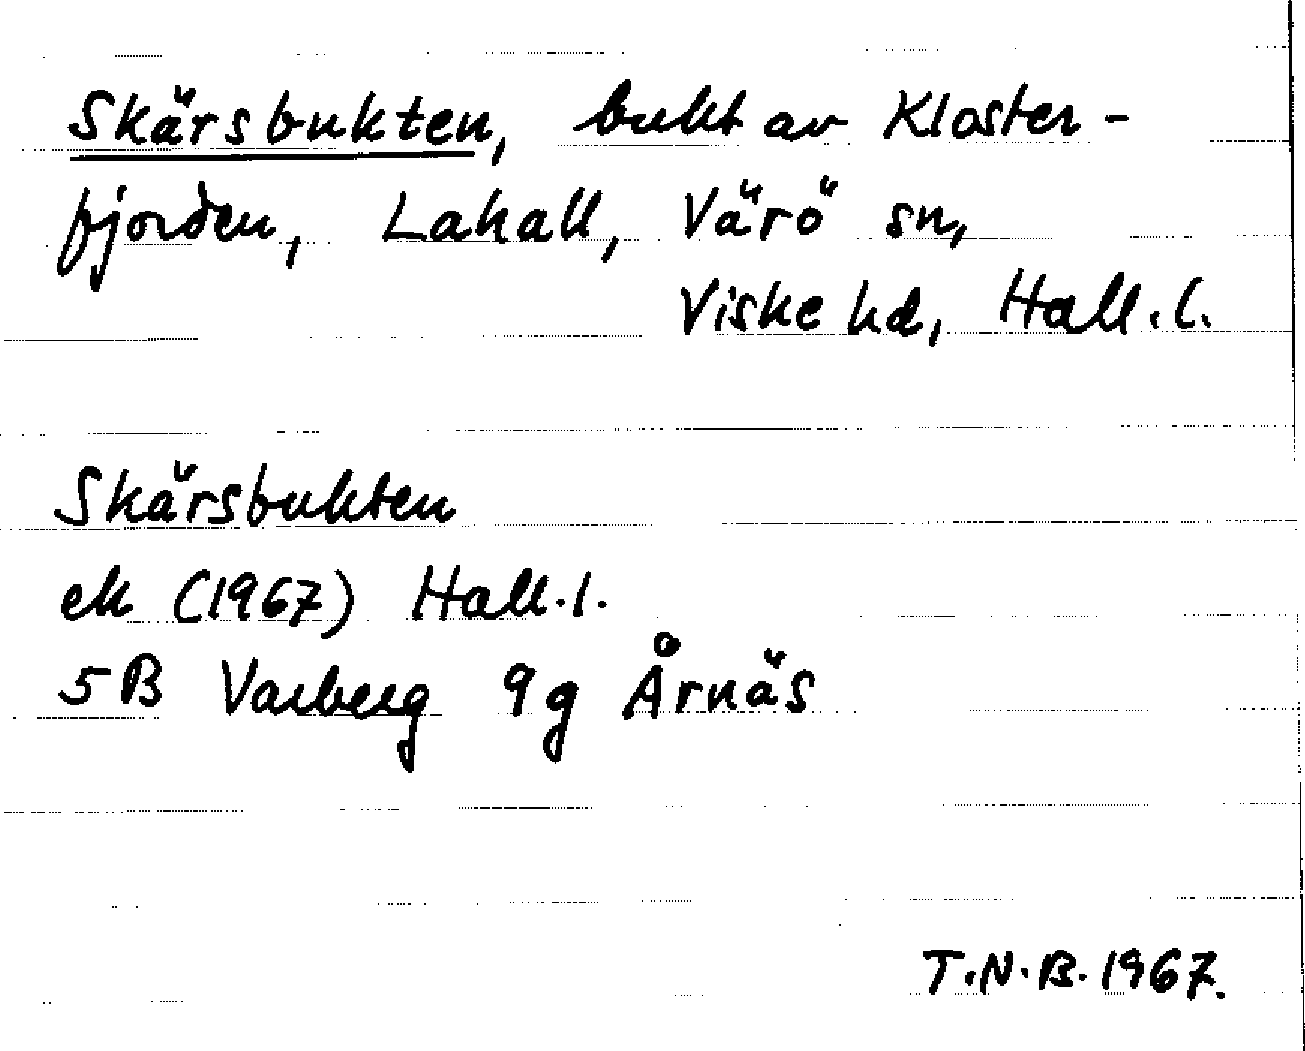 Skärsbukten, bukt av Kloster-
fjorden, Lahall, Värö sn,
Viske hd, Hall.l.
Skärsbukten
ek (1967) Hall.l.
5B Varberg 9g Årnäs
T.N.B. 1967.